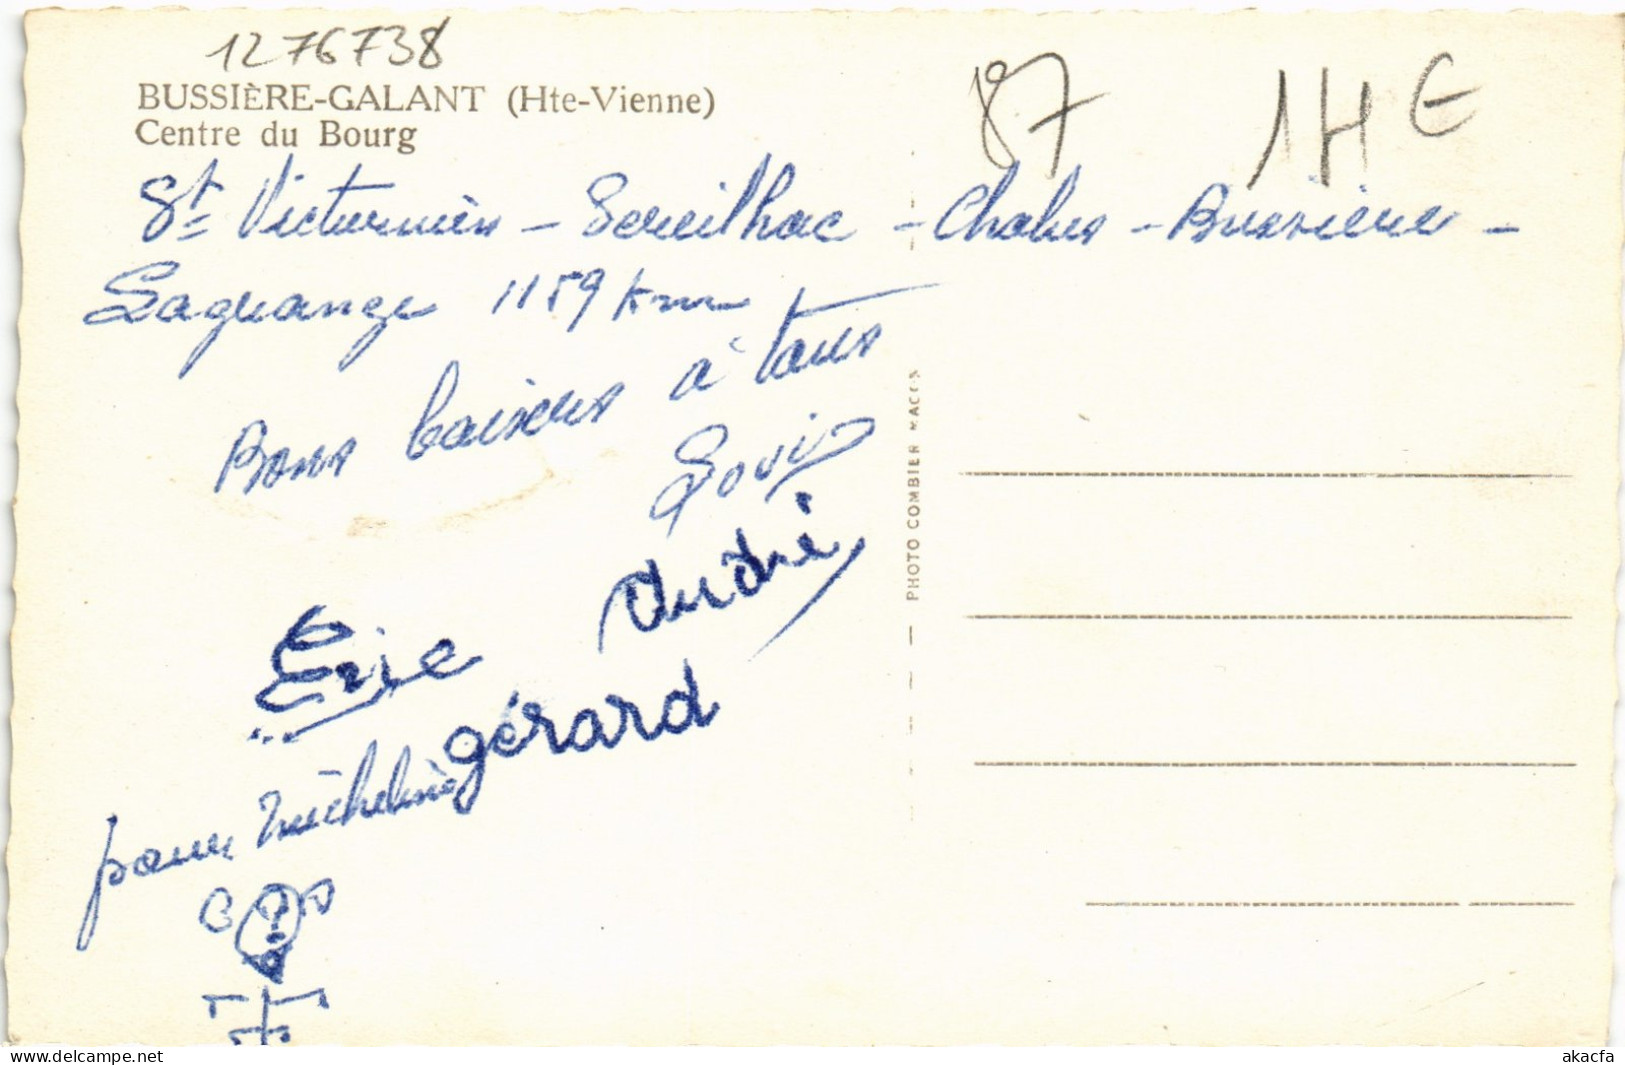 1276738
BUSSIÈRE-GALANT (Hte-Vienne)
Centre du Bourg
87
1H €
St Victurnien - Sereilhac - Chalus - Bussiere -
Lagrange 1159 km
Bons baisers à tous
Louis
André
Eric
gérard
pour Micheline
PHOTO COMBIER MACON
www.delcampe.net/fr/akacfa
akacfa